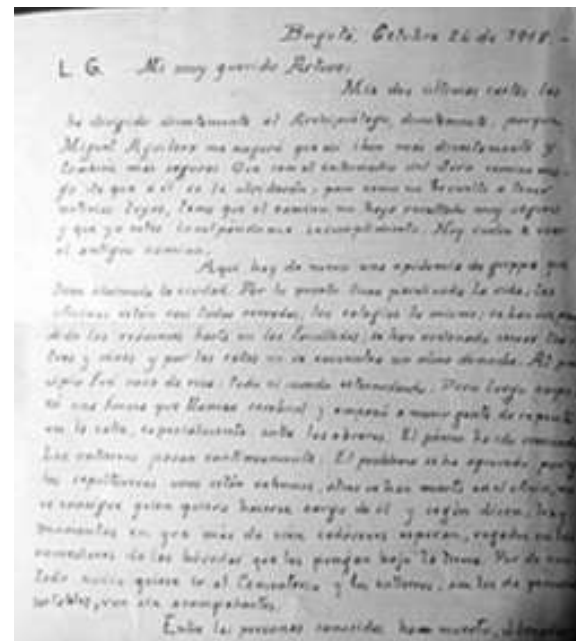 Bogotá, Octubre 26 de 1918.-
L. G. Mi muy querido Arturo:
Mis dos últimas cartas las
he dirigido directamente al Archipiélago, directamente, porque
Miguel Aguilera me aseguró que así iban más directamente y
también más seguras.
y que yo estés
el antiguo camino.
Aquí hay de nuevo una epidemia de grippa que
tiene alarmada la ciudad. Por lo pronto tiene paralizada la vida, las
oficinas están casi todas cerradas, los colegios lo mismo; se han suspen
dido los exámenes hasta en las facultades; se han ordenado cerrar tea
tros y cines y por las calles no se encuentra un alma de noche. Al prin
cipio fué cosa de risa: todo el mundo estornudando. Pero luego empe
zó una forma que llaman cerebral y empezó a morir gente de repente
en la calle, especialmente entre los obreros. El pánico ha ido
Los entierros pasan continuamente. El problema se ha agravado, porque
los sepultureros unos están enfermos, otros se han muerto en el oficio, no
se consigue quien quiera hacerse cargo de él y según dicen, hay
momentos en que más de cien cadáveres esperan, regados en los
corredores de las bóvedas que los pongan bajo la tierra.
todo nadie quiere ir al Cementerio y los entierros, aun los de personas
notables, van sin acompañantes.
Entre las personas conocidas han muerto,